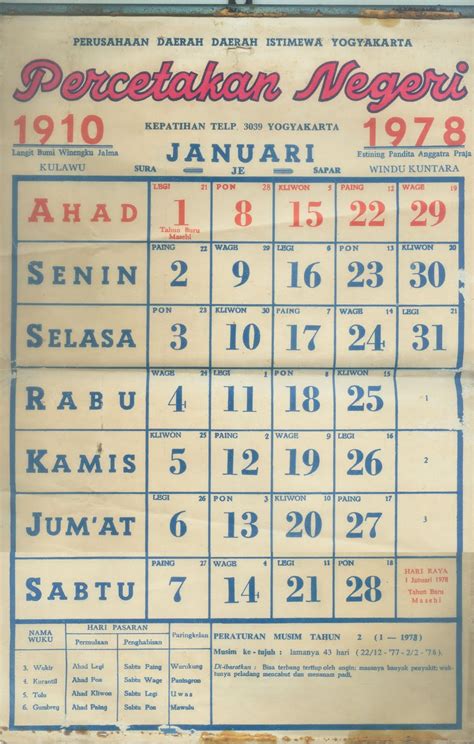 PERUSAHAAN DAERAH DAERAH ISTIMEWA YOGYAKARTA
Percetakan Negeri
1910 KEPATIHAN TELP. 3039 YOGYAKARTA 1978
Langit Bumi Winengku Jalma JANUARI Estining Pandita Anggatra Praja
KULAWU SURA JE SAPAR WINDU KUNTARA
LEGI 21 PON 28 KLIWON 5 PAING 12 WAGE 19
AHAD 1 8 15 22 29
Tahun Baru
Masehi
PAING 22 WAGE 29 LEGI 6 PON 13 KLIWON 20
SENIN 2 9 16 23 30
PON 23 KLIWON 30 PAING 7 WAGE 14 LEGI 21
SELASA 3 10 17 24 31
WAGE 24 LEGI 1 PON 8 KLIWON 15
RABU 4 11 18 25 1
KLIWON 25 PAING 2 WAGE 9 LEGI 16
KAMIS 5 12 19 26 2
LEGI 26 PON 3 KLIWON 10 PAING 17
JUM'AT 6 13 20 27 3
PAING 27 WAGE 4 LEGI 11 PON 18
SABTU 7 14 21 28
HARI RAYA
1 Januari 1978
Tahun Baru
Masehi
NAMA WUKU HARI PASARAN Paringkelan
Permulaan Penghabisan
3. Wukir Ahad Legi Sabtu Paing Wurukung
4. Kurantil Ahad Pon Sabtu Wage Paningron
5. Tolu Ahad Kliwon Sabtu Legi Uwas
6. Gumbreg Ahad Paing Sabtu Pon Mawulu
PERATURAN MUSIM TAHUN 2 (1 — 1978)
Musim ke-tujuh : lamanya 43 hari (22/12 -'77-2/2 -'78).
Di-ibaratkan : Bisa terbang tertiup oleh angin; masanya banyak penyakit; waktunya peladang mencabut dan menanam padi.